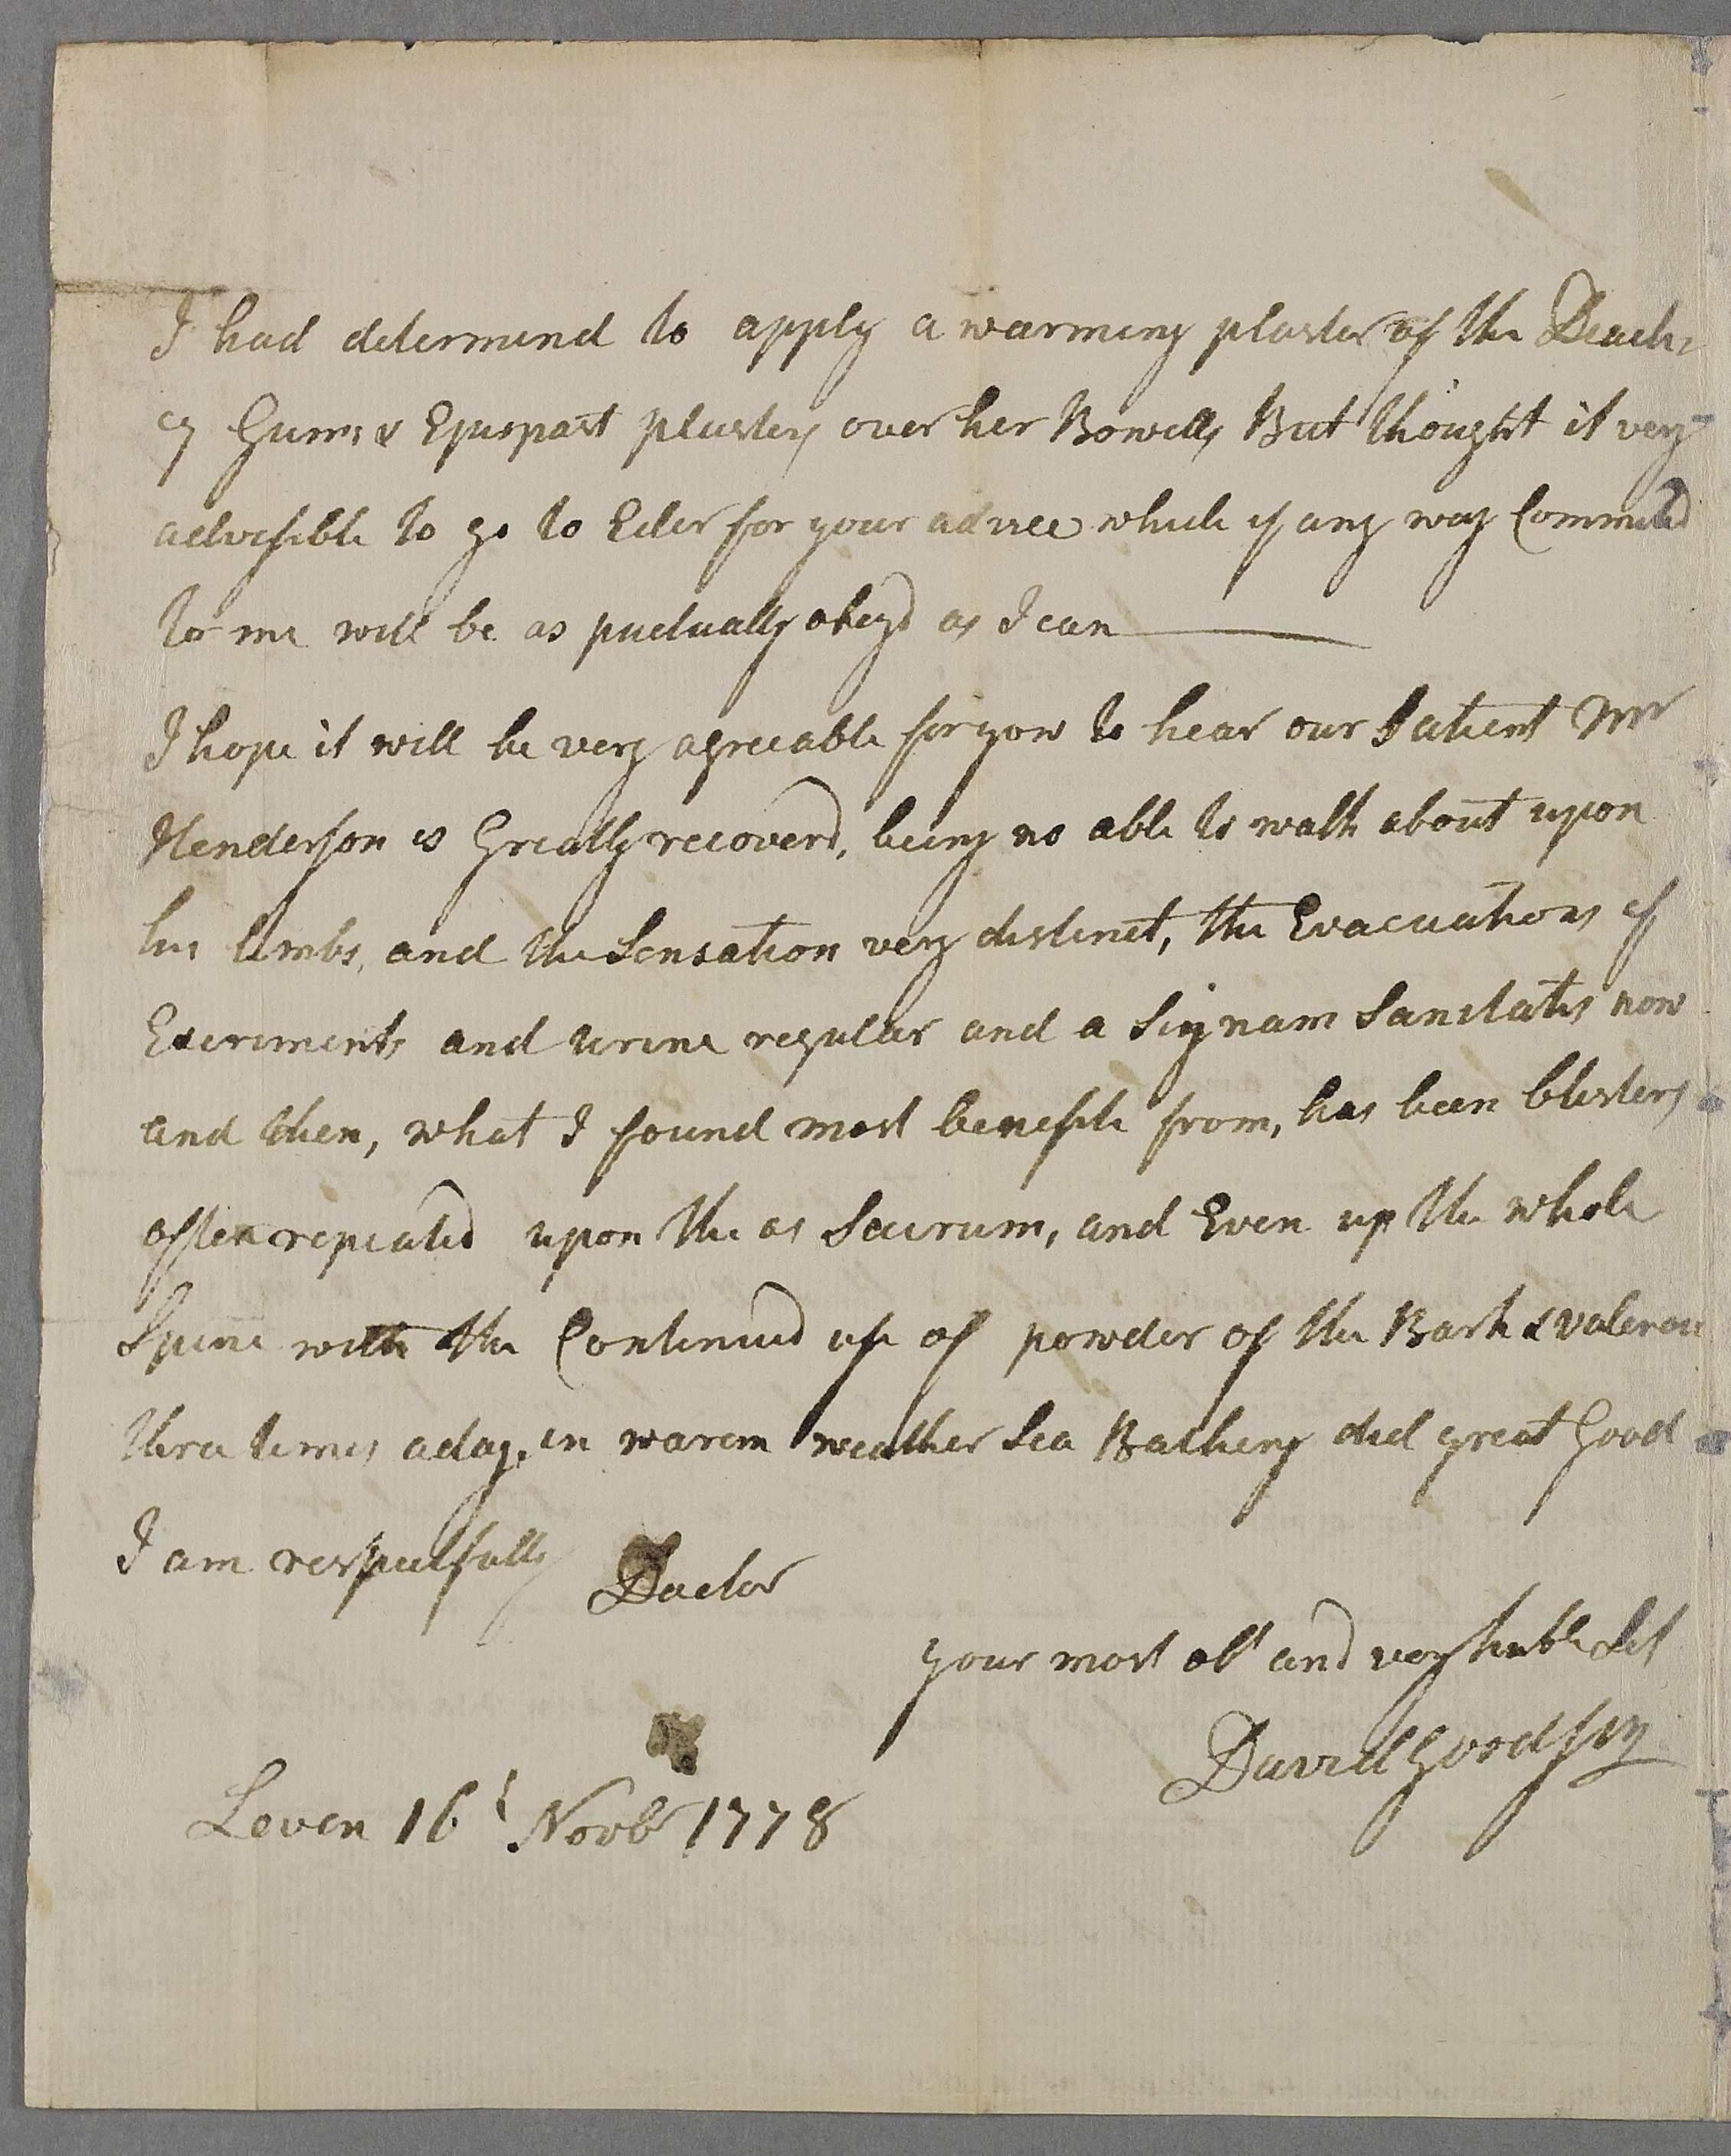 I had determind to apply a warming plaster of the Diach:
cy Gums & Epispast plasters over her Bowells But thought it very
advisible to go to Eder for your advice which if any way Commited
to me will be as puctually obeyd as I can
I hope it will be very agreeable for yow to hear our Patient Mr
Henderson is Greatly recoverd, being no able to walk about upon
his limbs, and the Sensation very distinct, the Evacuations of
Excriments and urine regular and a Signam Sanitatis now
and then, what I found most benefite from, has been blisters
often repeated upon the os Sacrum, and Even up the whole
Spine with the Continued use of powder of the Bark & valerian
three times a day, in warem weather Sea Bathing did great Good
I am respectfully Doctor
your most obt and very huble Sert
David Goodsir
Leven 16t Novbr 1778